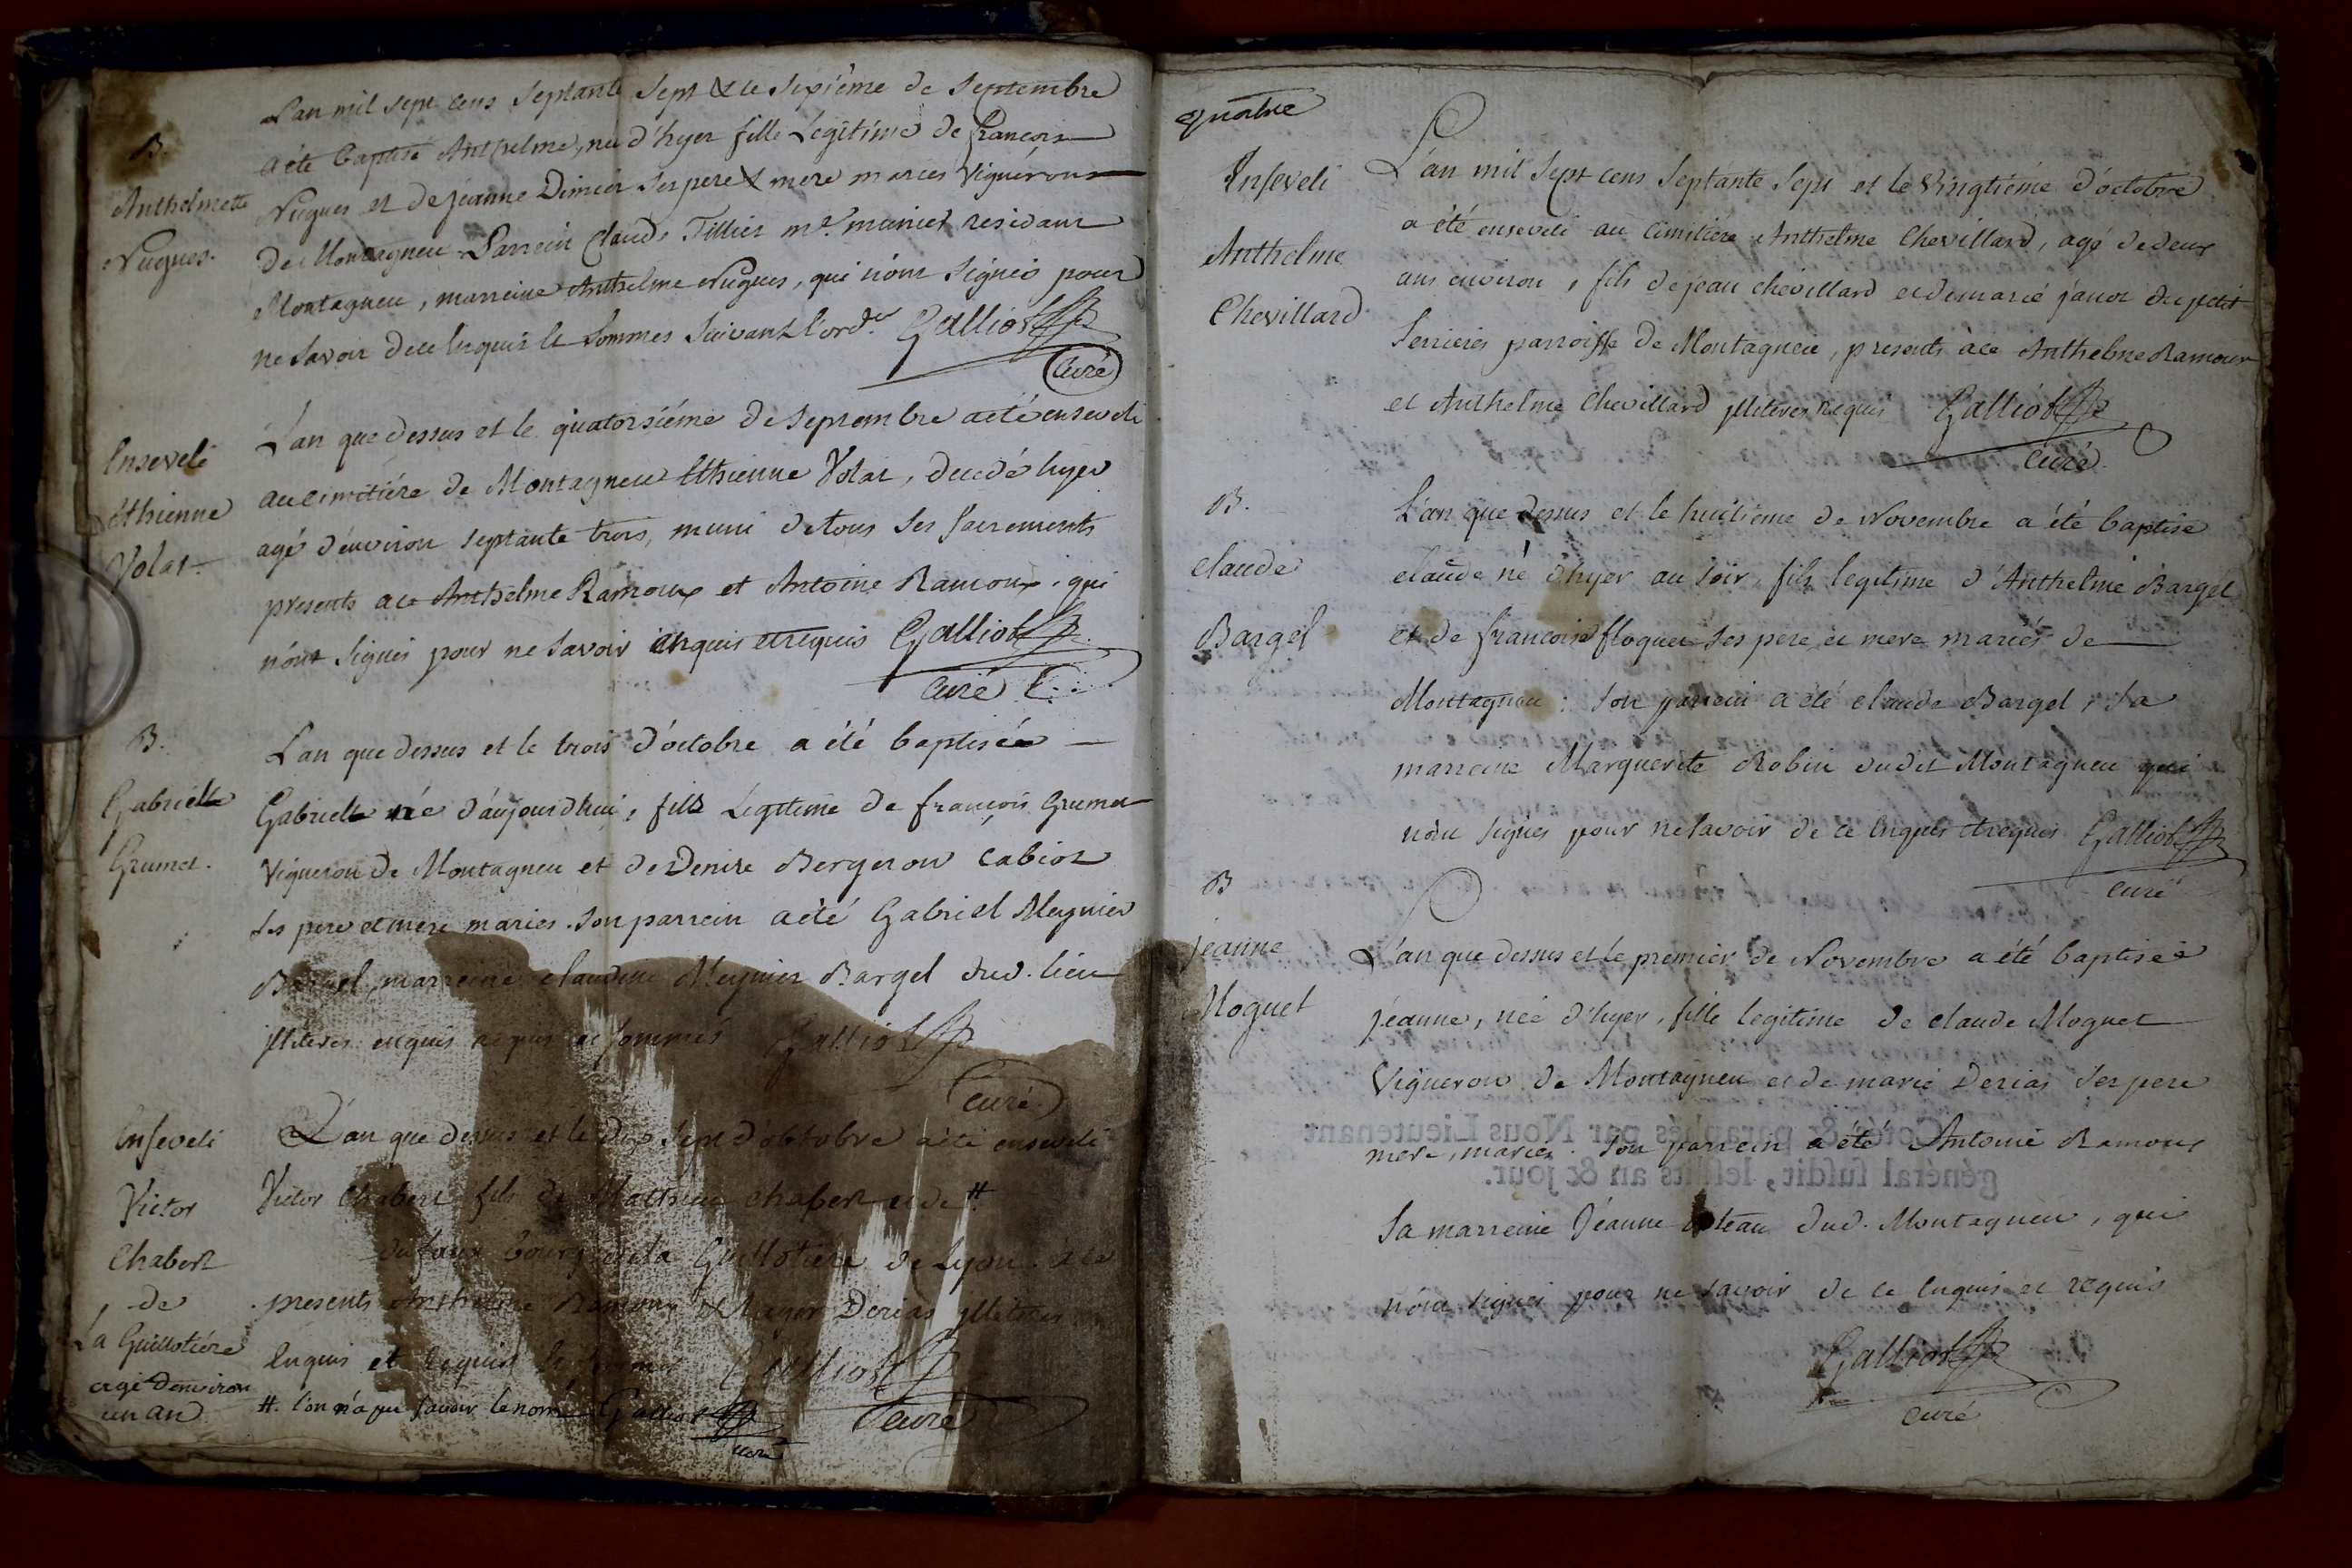 B.
Anthelmette
Nugues.
L'an mil sept cens septante sept & le sixiéme de septembre
a été baptisé Anthelme, née d'hyer fille Legitime de françois
Nugues et de jeanne Dimier ses pere & mere mariés Vignerons
De Montagneu Parrein Claude Tillier mr. munier residant
Montagneu, marreine Anthelme Nugues, qui n'ont signés pour
ne savoir de ce enquis et sommes suivant l'ord.ce Galliot
Curé
Enseveli
Ethienne
Volat
L'an que dessus et le quatorsiéme de septembre a été enseveli
au cimitiére de Montagneu Ethienne Volat, decedé hyer
agé d'environ septante trois, muni de tous ses sacrements
presents a ce Anthelme Ramoux et Antoine Ramoux, qui
n'ont signés pour ne savoir enquis et requis Galliot
Curé
B.
Gabrielle
Grumet.
L'an que dessus et le trois d'octobre a été baptisée
Gabrielle née d'aujourdhui, fille Legitime de françois Grumet
Vigneron de Montagneu et de Denise Bergeron Cabiot
ses pere et mere maries. son parrein a été Gabriel Meynier
Bargel, marreine claudine Meynier Bargel dud. lieu
jlliteres enquis requis et sommés Galliot
Curé
Enseveli
Victor
Chabert
de
La Guillotiére
agé d'environ
un an
L'an que dessus et le dix sept d'octobre a été enseveli
Victor Chabert fils de Mathieu Chabert et de #
du faux bourg de la Guillotiére de Lyon. à ce
presents Anthelme Ramoux & Mayor Derias jlliteres
Enquis et requis et sommés Galliot
curé
#. l'on n'a pu savoir le nom Galliot
curé
quatre
Enseveli
Anthelme
Chevillard
L'an mil sept cens septante sept et le vingtiéme d'octobre
a été enseveli au Cimitiére Anthelme Chevillard, agé de deux
ans environ, fils de jean chevillard et de marie janot du petit
Serrieres parroisse de Montagneu, presents à ce Anthelme Ramoux
et Anthelme Chevillard jlliteres requis Galliot
Curé
B.
claude
Bargel
L'an que dessus et le huitieme de Novembre a été baptisé
claude né d'hyer au soir, fils legitime d'Anthelme Bargel
et de francoise floquet ses pere et mere mariés de
Montagneu: son parrein a été claude Bargel, sa
marreine Marguerite Robin dudit Montagneu qui
n'ont signés pour ne savoir de ce enquis et requis Galliot
curé
B
jeanne
Moguet
L'an que dessus et le premier de Novembre a été baptisée
jeanne, née d'hyer, fille legitime de claude Moguet
Vigneron de Montagneu et de marie Derias ses pere
mere, mariés. son parrein a été Antoine Ramoux
sa marreine Jeanne dud. Montagneu, qui
n'ont signés pour ne savoir de ce enquis et requis
Galliot
curé
Cotés & paraphés par Nous Lieutenant
général susdit, lesdits an & jour.